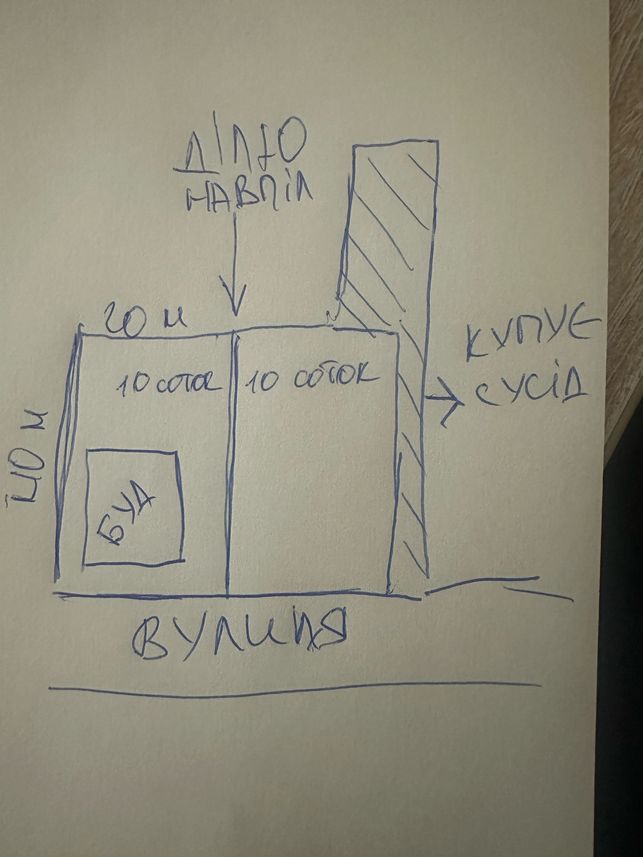 ДІЛЮ
НАВПІЛ
20 м
10 соток
10 соток
КУПУЄ
СУСІД
40 м
БУД
ВУЛИЦЯ